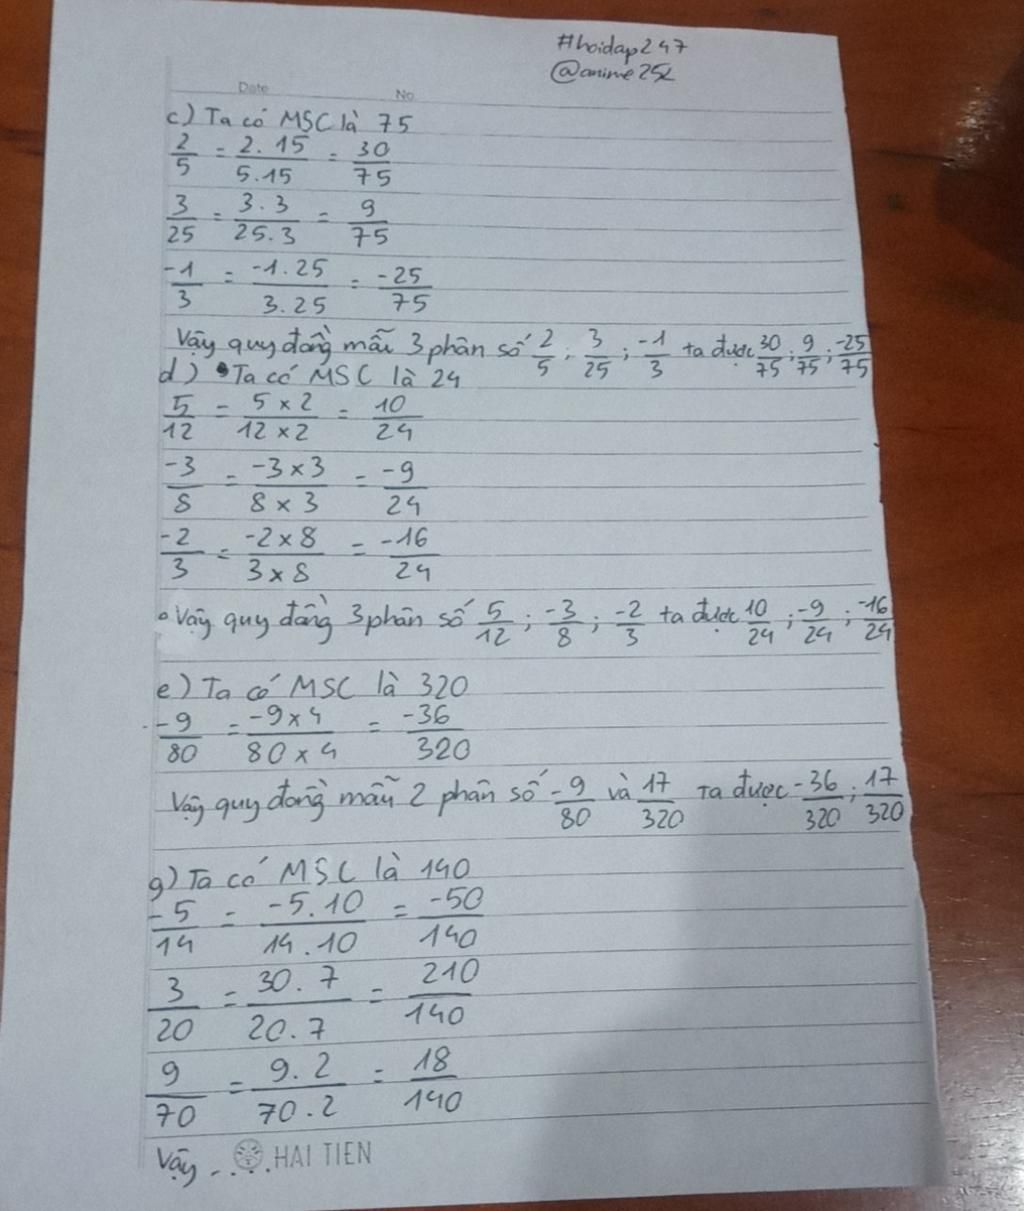 #hoidap247
@anime25L
Date No
c) Ta có MSC là 75
2/5 = 2.15/5.15 = 30/75
3/25 = 3.3/25.3 = 9/75
-1/3 = -1.25/3.25 = -25/75
Vậy quy đồng mẫu 3 phân số 2/5; 3/25; -1/3 ta được 30/75; 9/75; -25/75
d) Ta có MSC là 24
5/12 = 5×2/12×2 = 10/24
-3/8 = -3×3/8×3 = -9/24
-2/3 = -2×8/3×8 = -16/24
Vậy quy đồng 3 phân số 5/12; -3/8; -2/3 ta được 10/24; -9/24; -16/24
e) Ta có MSC là 320
-9/80 = -9×4/80×4 = -36/320
Vậy quy đồng mẫu 2 phân số -9/80 và 17/320 ta được -36/320; 17/320
g) Ta có MSC là 140
-5/14 = -5.10/14.10 = -50/140
3/20 = 30.7/20.7 = 210/140
9/70 = 9.2/70.2 = 18/140
Vậy ....
HAI TIEN